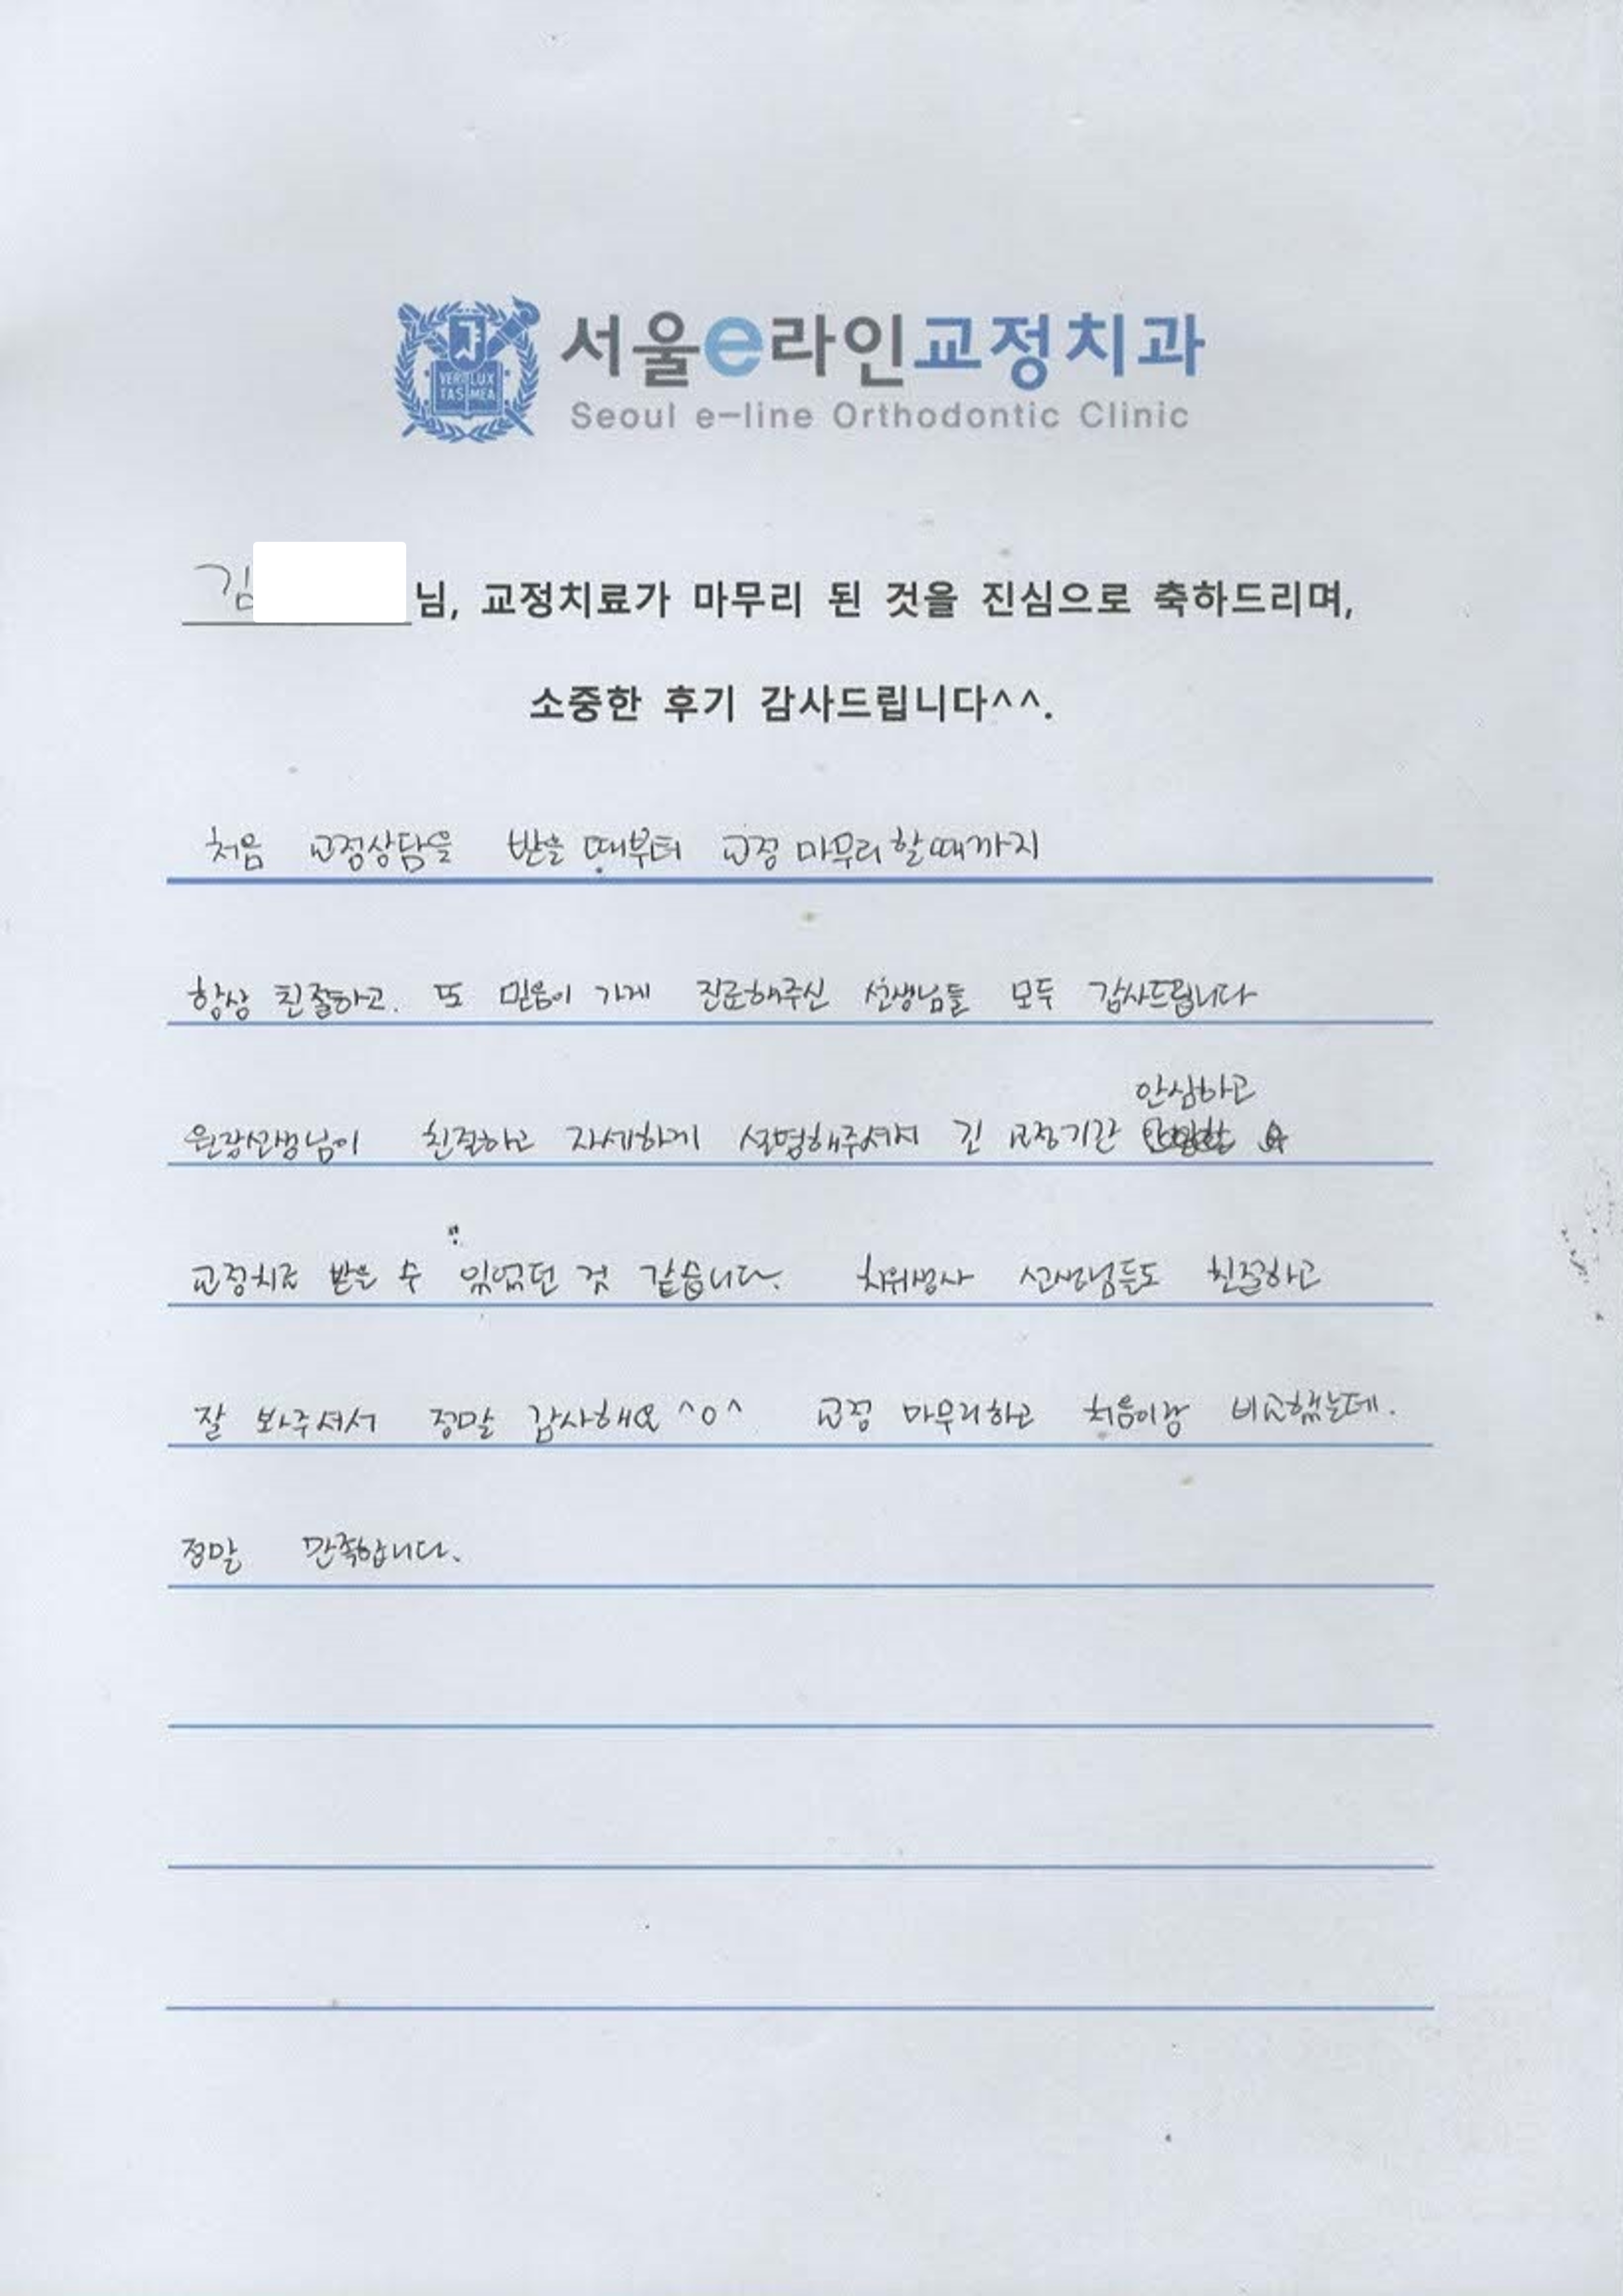 VERI LUX
TAS MEA
서울e라인교정치과
Seoul e-line Orthodontic Clinic
김 님, 교정치료가 마무리 된 것을 진심으로 축하드리며,
소중한 후기 감사드립니다^^.
처음 교정상담을 받을 때부터 교정 마무리할때까지
항상 친절하고. 또 믿음이 가게 진료해주신 선생님들 모두 감사드립니다
안심하고
원장선생님이 친절하고 자세하게 설명해주셔서 긴 교정기간
교정치료 받을 수 있었던 것 같습니다. 치위생사 선생님들도 친절하고
잘 봐주셔서 정말 감사해요 ^o^ 교정 마무리하고 처음이랑 비교했는데.
정말 만족합니다.